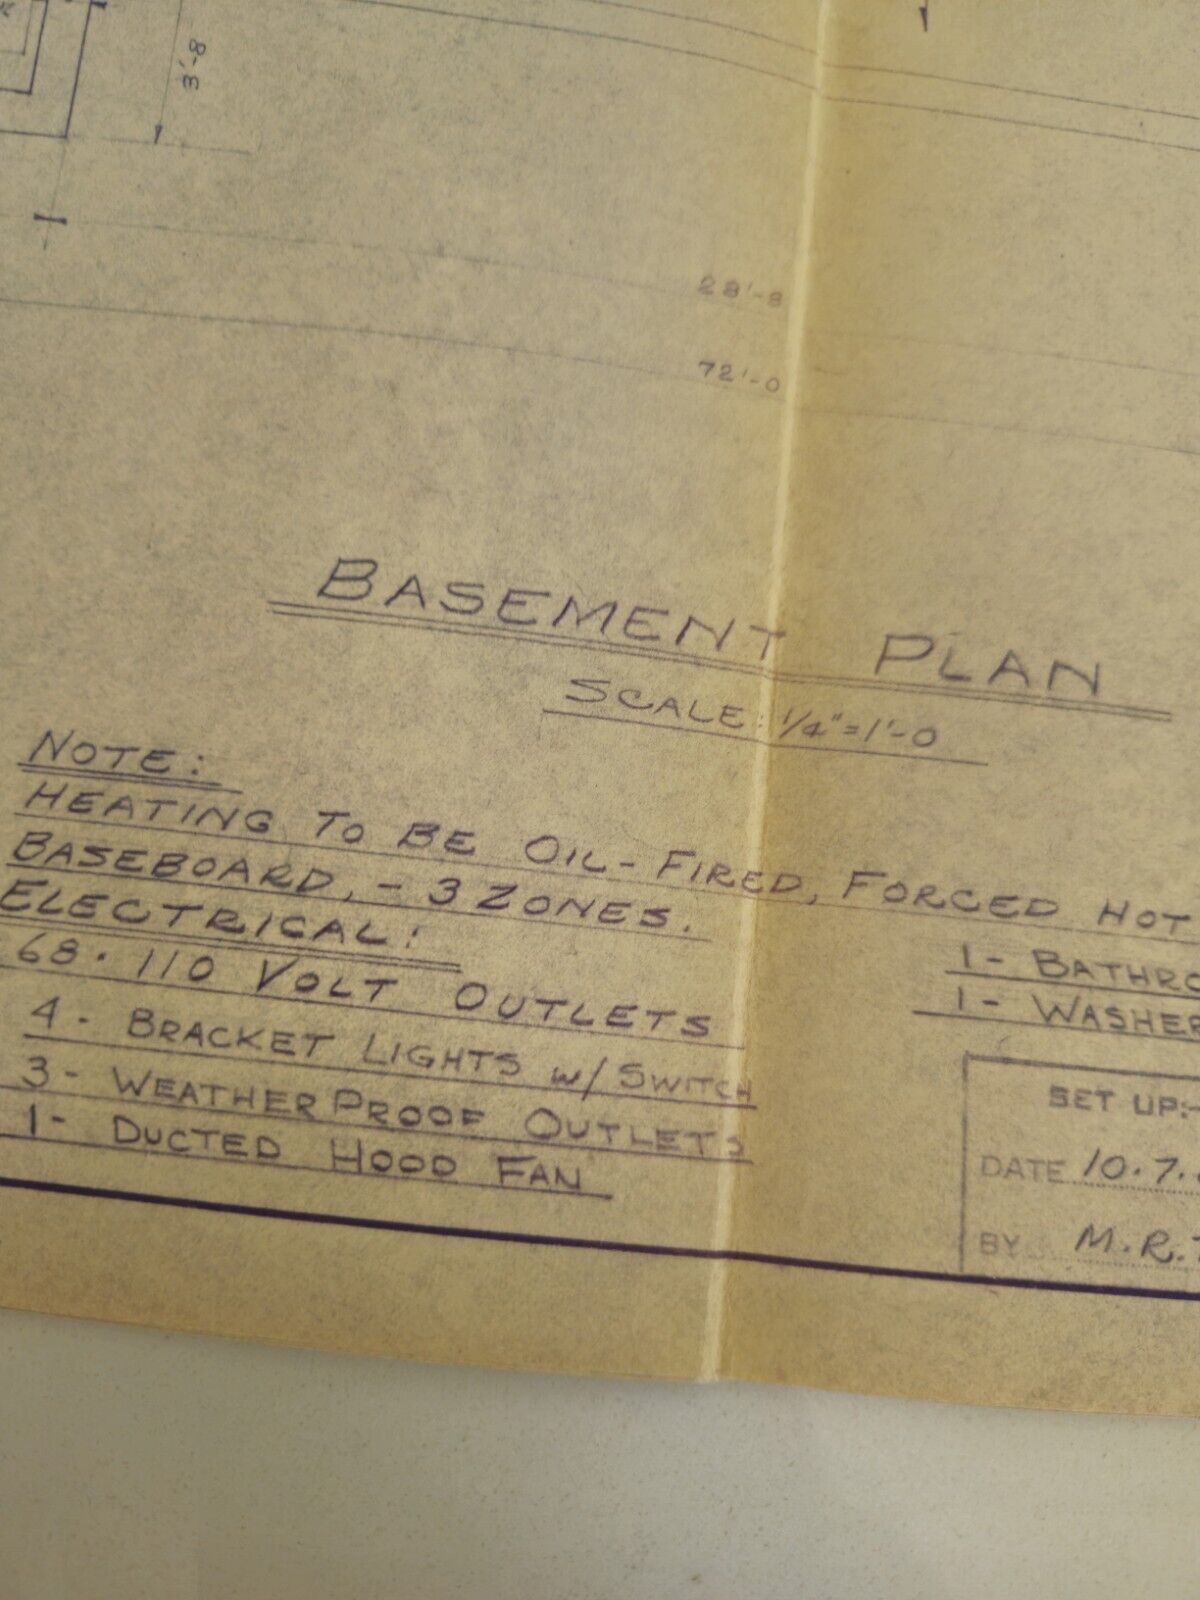 3'-8
28'-8
72'-0
BASEMENT PLAN
SCALE: 1/4"=1'-0
NOTE:
HEATING TO BE OIL-FIRED, FORCED HOT
BASEBOARD, - 3 ZONES.
ELECTRICAL:
68 · 110 VOLT OUTLETS
4 - BRACKET LIGHTS w/ SWITCH
3 - WEATHERPROOF OUTLETS
1 - DUCTED HOOD FAN
1 - BATHRO
1 - WASHER
SET UP:-
DATE 10.7.
BY M.R.